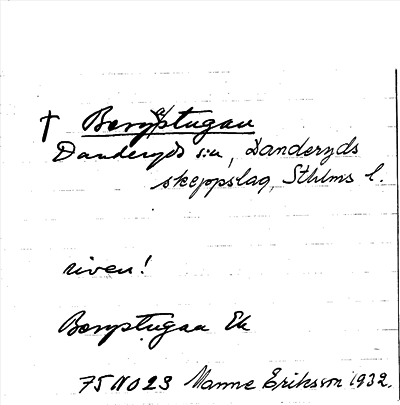 † Bergstugan
Danderyds sn, Danderyds
skeppslag, Sthlms l.
riven!
Bergstugan Ek
75 NO 23 Manne Eriksson 1932.